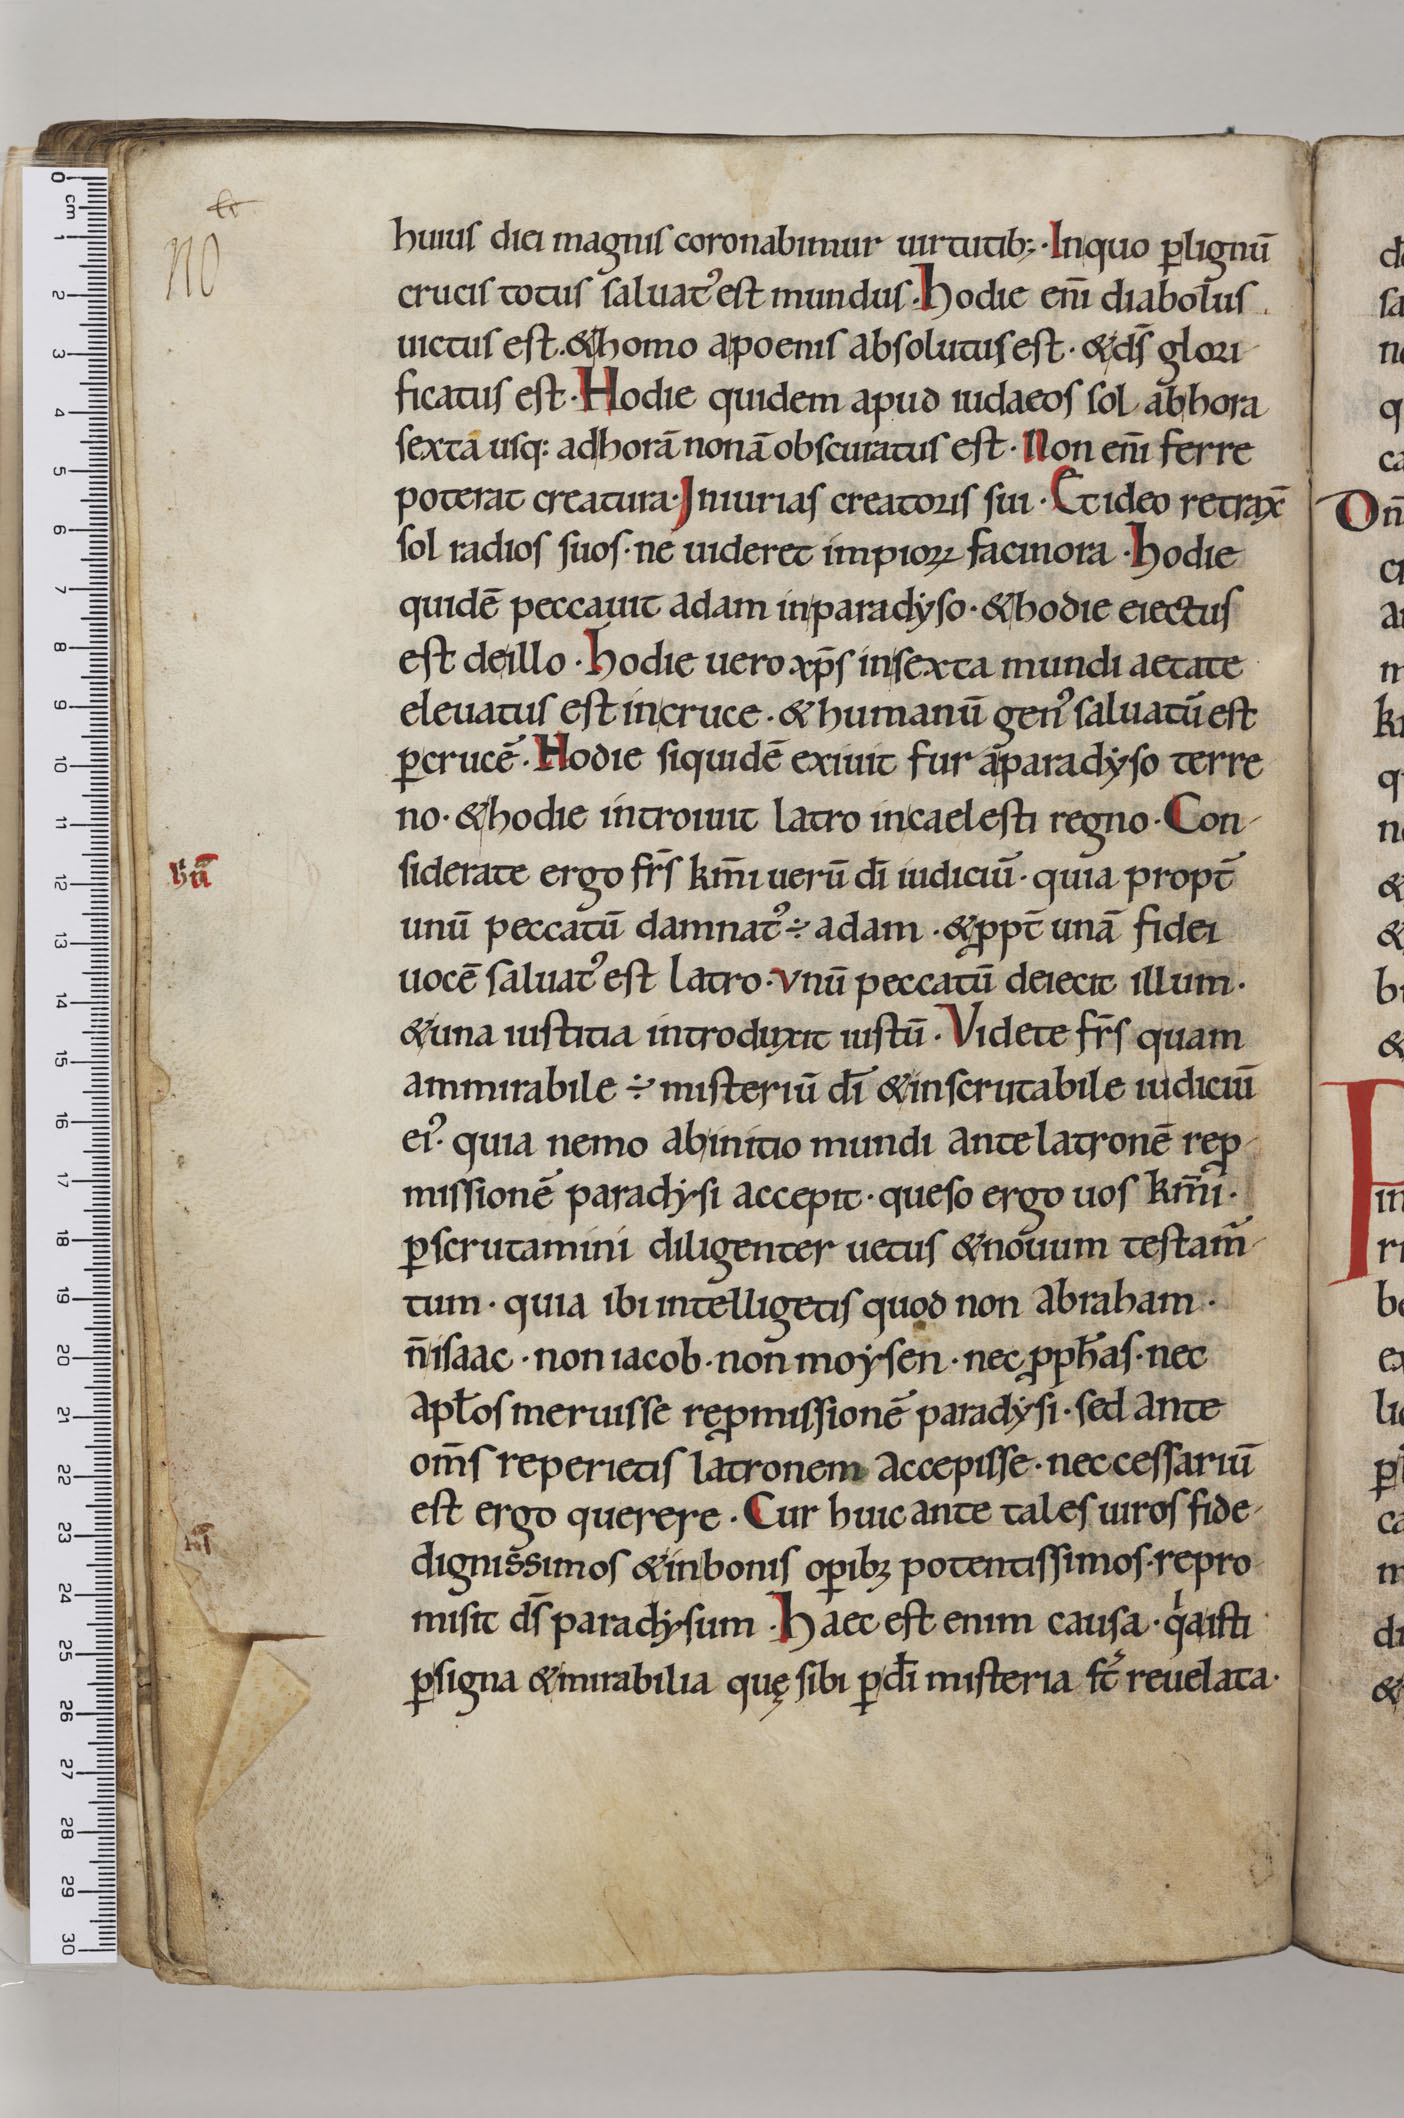 huius diei magnis coronabimur uirtutib;· Inquo ꝑlignū
crucis totus saluatꝰ est mundus· hodie eni̅ diabolus
uictus est· &homo apoenis absolutus est· &ds̅ glori-
ficatus est· Hodie quidem apud iudaeos sol abhora
sexta usq: adhorā nonā obscuratus est· Non eni̅ ferre
poterat creatura· Iniurias creatoris sui· Et ideo retrax̅
sol radios suos· ne uideret impioꝝ facinora· hodie
quidē peccauit adam inparadẏso· &hodie eiectus
est deillo· hodie uero xp̅s insexta mundi aetate
eleuatus est incruce· &humanū genꝰ saluatū est
ꝑcrucē· Hodie siquidē exiuit fur aparadẏso terre
no· &hodie introiuit latro incaelesti regno· Con-
siderate ergo fr̅s km̅i uerū di̅ iudiciū· quia propt̅
unū peccatū damnatꝰ ÷ adam· &ꝓpt̅ unā fidei
uocē saluatꝰ est latro· vnū peccatū deiecit illum·
&una iustitia introduxit iustū· Videte fr̅s quam
ammirabile ÷ misteriū di̅ &inscrutabile iudiciū
eiꝰ· quia nemo abinitio mundi ante latronē reꝓ-
missionē paradẏsi accepit· queso ergo uos km̅i·
ꝑscrutamini diligenter uetus &nouum testam̅-
tum· quia ibi intelligetis quod non abraham·
n̅ isaac· non iacob· non moẏsen· nec ꝓph̅as· nec
apl̅os meruisse reꝓmissionē paradẏsi· sed ante
om̅s reperietis latronem accepisse· neccessariū
est ergo querere· Cur huic ante tales uiros fide-
dignissimos &inbonis oꝑibꝫ potentissimos· repro
misit ds̅ paradẏsum· Haec est enim causa· qͥa isti
ꝑsigna &mirabilia quę sibi ꝑdi̅ misteria st̅ reuelata·